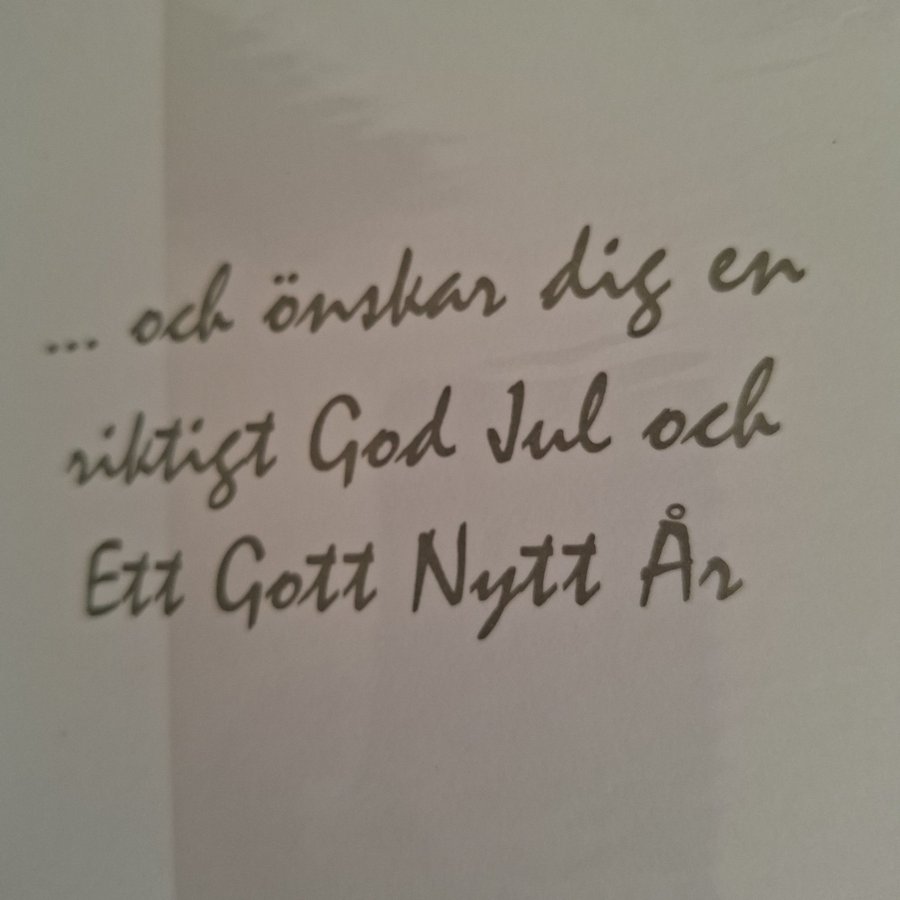 ... och önskar dig en
riktigt God Jul och
Ett Gott Nytt År